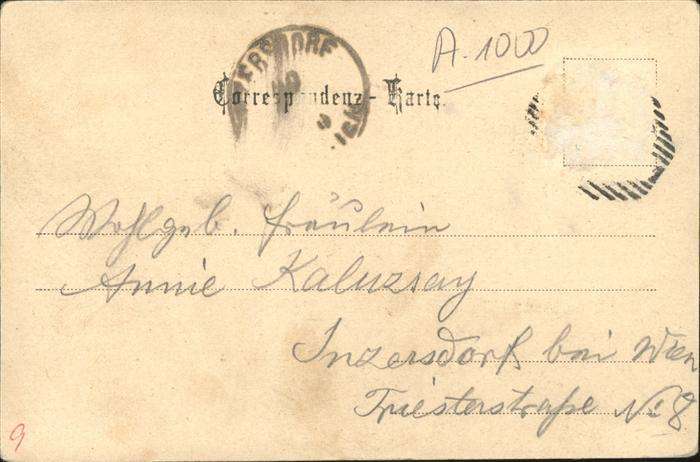 A. 1000
ERSDORF
Correspondenz-Karte.
Wohlgeb. Fräulein
Annie Kaluzsay
Inzersdorf bei Wien
Triesterstraße No 8
9